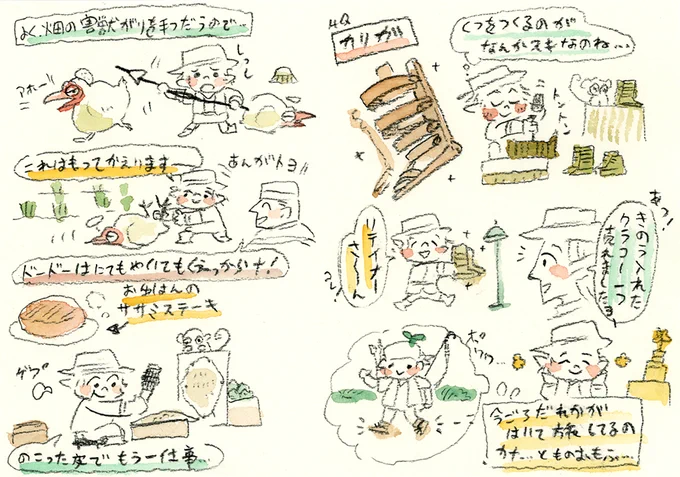 よく畑の害獣がり手つだうので…
しっし
アホー
これはもってかえります
あんがトヨ!!
ドードーはにてもやいてもくえっからナ!
おゆはんの
ササミステーキ
ゲプ
のこった皮でもう一仕事…
HQ
カリガ
くつをつくるのが
なんか好きなのね…
トントン
あっ!
きのう入れた
クラコー1つ
売れましたヨ
リテイナ
さーん
ポワワ…
今ごろだれかが
はいて旅してるの
かナ…とものおもふ…